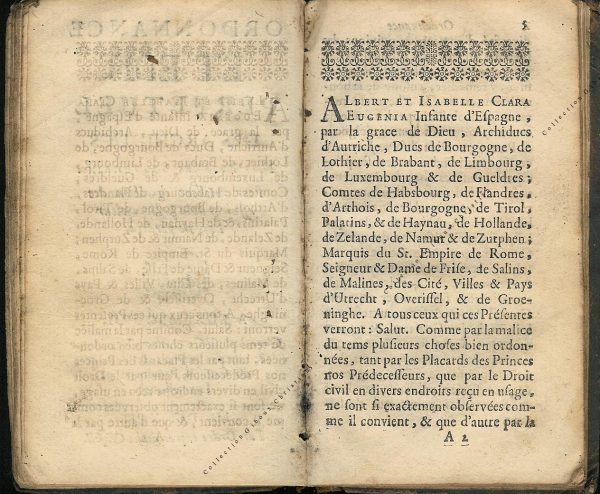 3
ALBERT ET ISABELLE CLARA
EUGENIA Infante d'Espagne,
par la grace de Dieu, Archiducs
d'Autriche, Ducs de Bourgogne, de
Lothier, de Brabant, de Limbourg,
de Luxembourg & de Gueldres;
Comtes de Habsbourg, de Flandres,
d'Arthois, de Bourgogne, de Tirol,
Palatins, & de Haynau, de Hollande,
de Zelande, de Namur & de Zutphen;
Marquis du St. Empire de Rome,
Seigneur & Dame de Frise, de Salins,
de Malines, des Cité, Villes & Pays
d'Utrecht, Overissel, & de Groe-
ninghe. A tous ceux qui ces Présentes
verront: Salut. Comme par la malice
du tems plusieurs choses bien ordon-
nées, tant par les Placards des Princes
nos Prédecesseurs, que par le Droit
civil en divers endroits reçu en usage,
ne sont si exactement observées com-
me il convient, & que d'autre par la
A 2